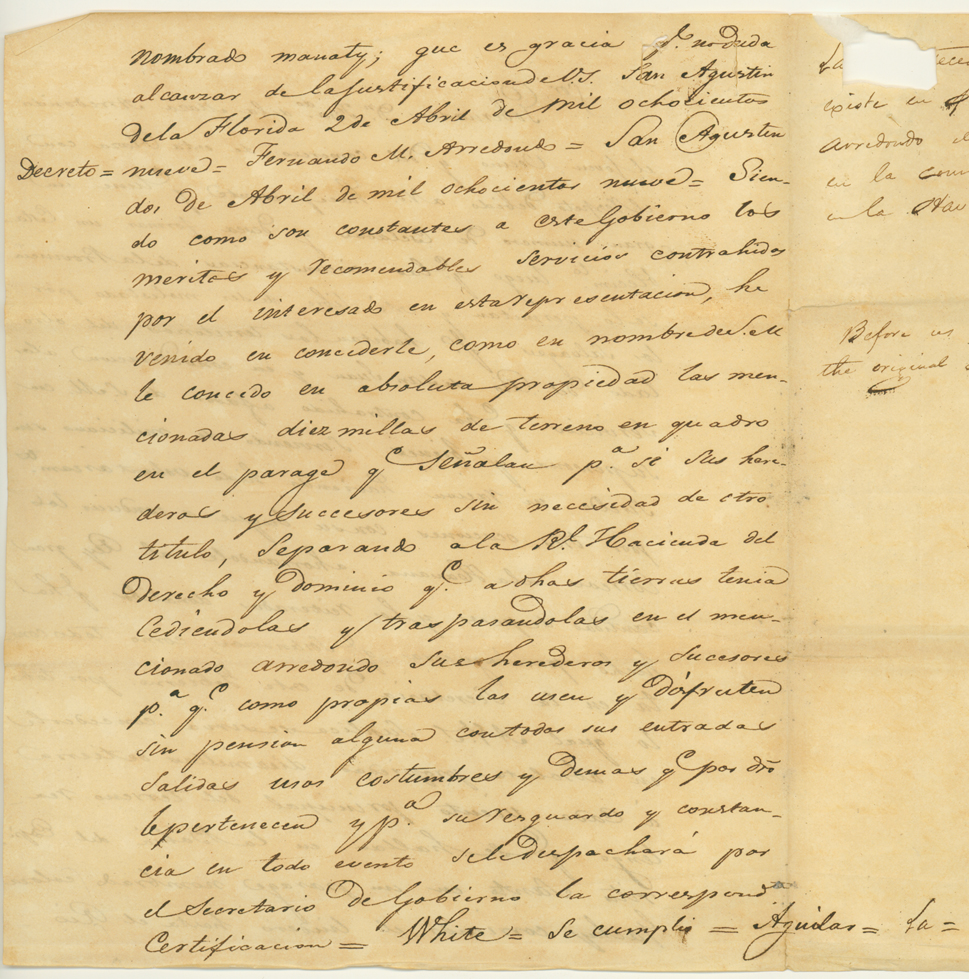 nombrado manaty; que es gracia q.e no duda
alcanzar de la Justificacion de V.S. San Agustin
de la Florida 2 de Abril de mil ochocientos
Decreto = nueve = Fernando M. Arredondo = San Agustin
dos de Abril de mil ochocientos nueve = Sien-
do como son constantes a este Gobierno los
meritos y recomendables servicios contrahidos
por el interesado en esta representacion, he
venido en concederle, como en nombre de S.M
le concedo en absoluta propiedad las men-
cionadas diez millas de terreno en quadro
en el parage q.e señalan p.a si sus here-
deros y Successores sin necesidad de otro
titulo, separando a la R.l Hacienda del
derecho y dominio q.e a dhas tierras tenia
Cediendolas y traspasandolas en el men-
cionado arredondo sus herederos y sucesores
p.a q.e como propias las usen y disfruten
sin pension alguna con todas sus entradas
salidas usos costumbres y demas q.e por dro
le pertenecen y p.a su resguardo y constan-
cia en todo evento se le despachará por
el Secretario de Gobierno la correspond.te
Certificacion = White = Se cumplio = Aguilar = La =
La
existe en
arredondo
en la
en la
Before us
the original